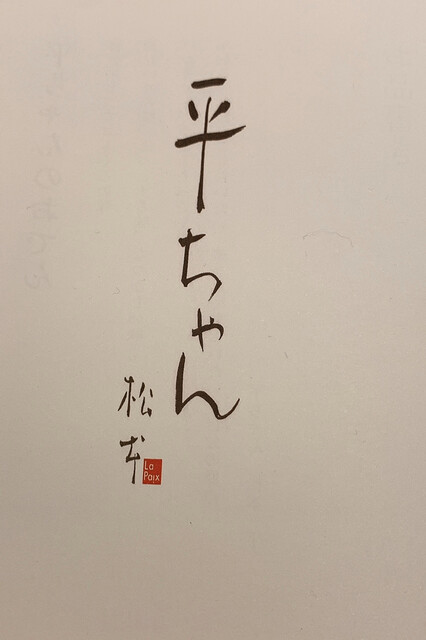 平ちゃん
松本
La
Paix